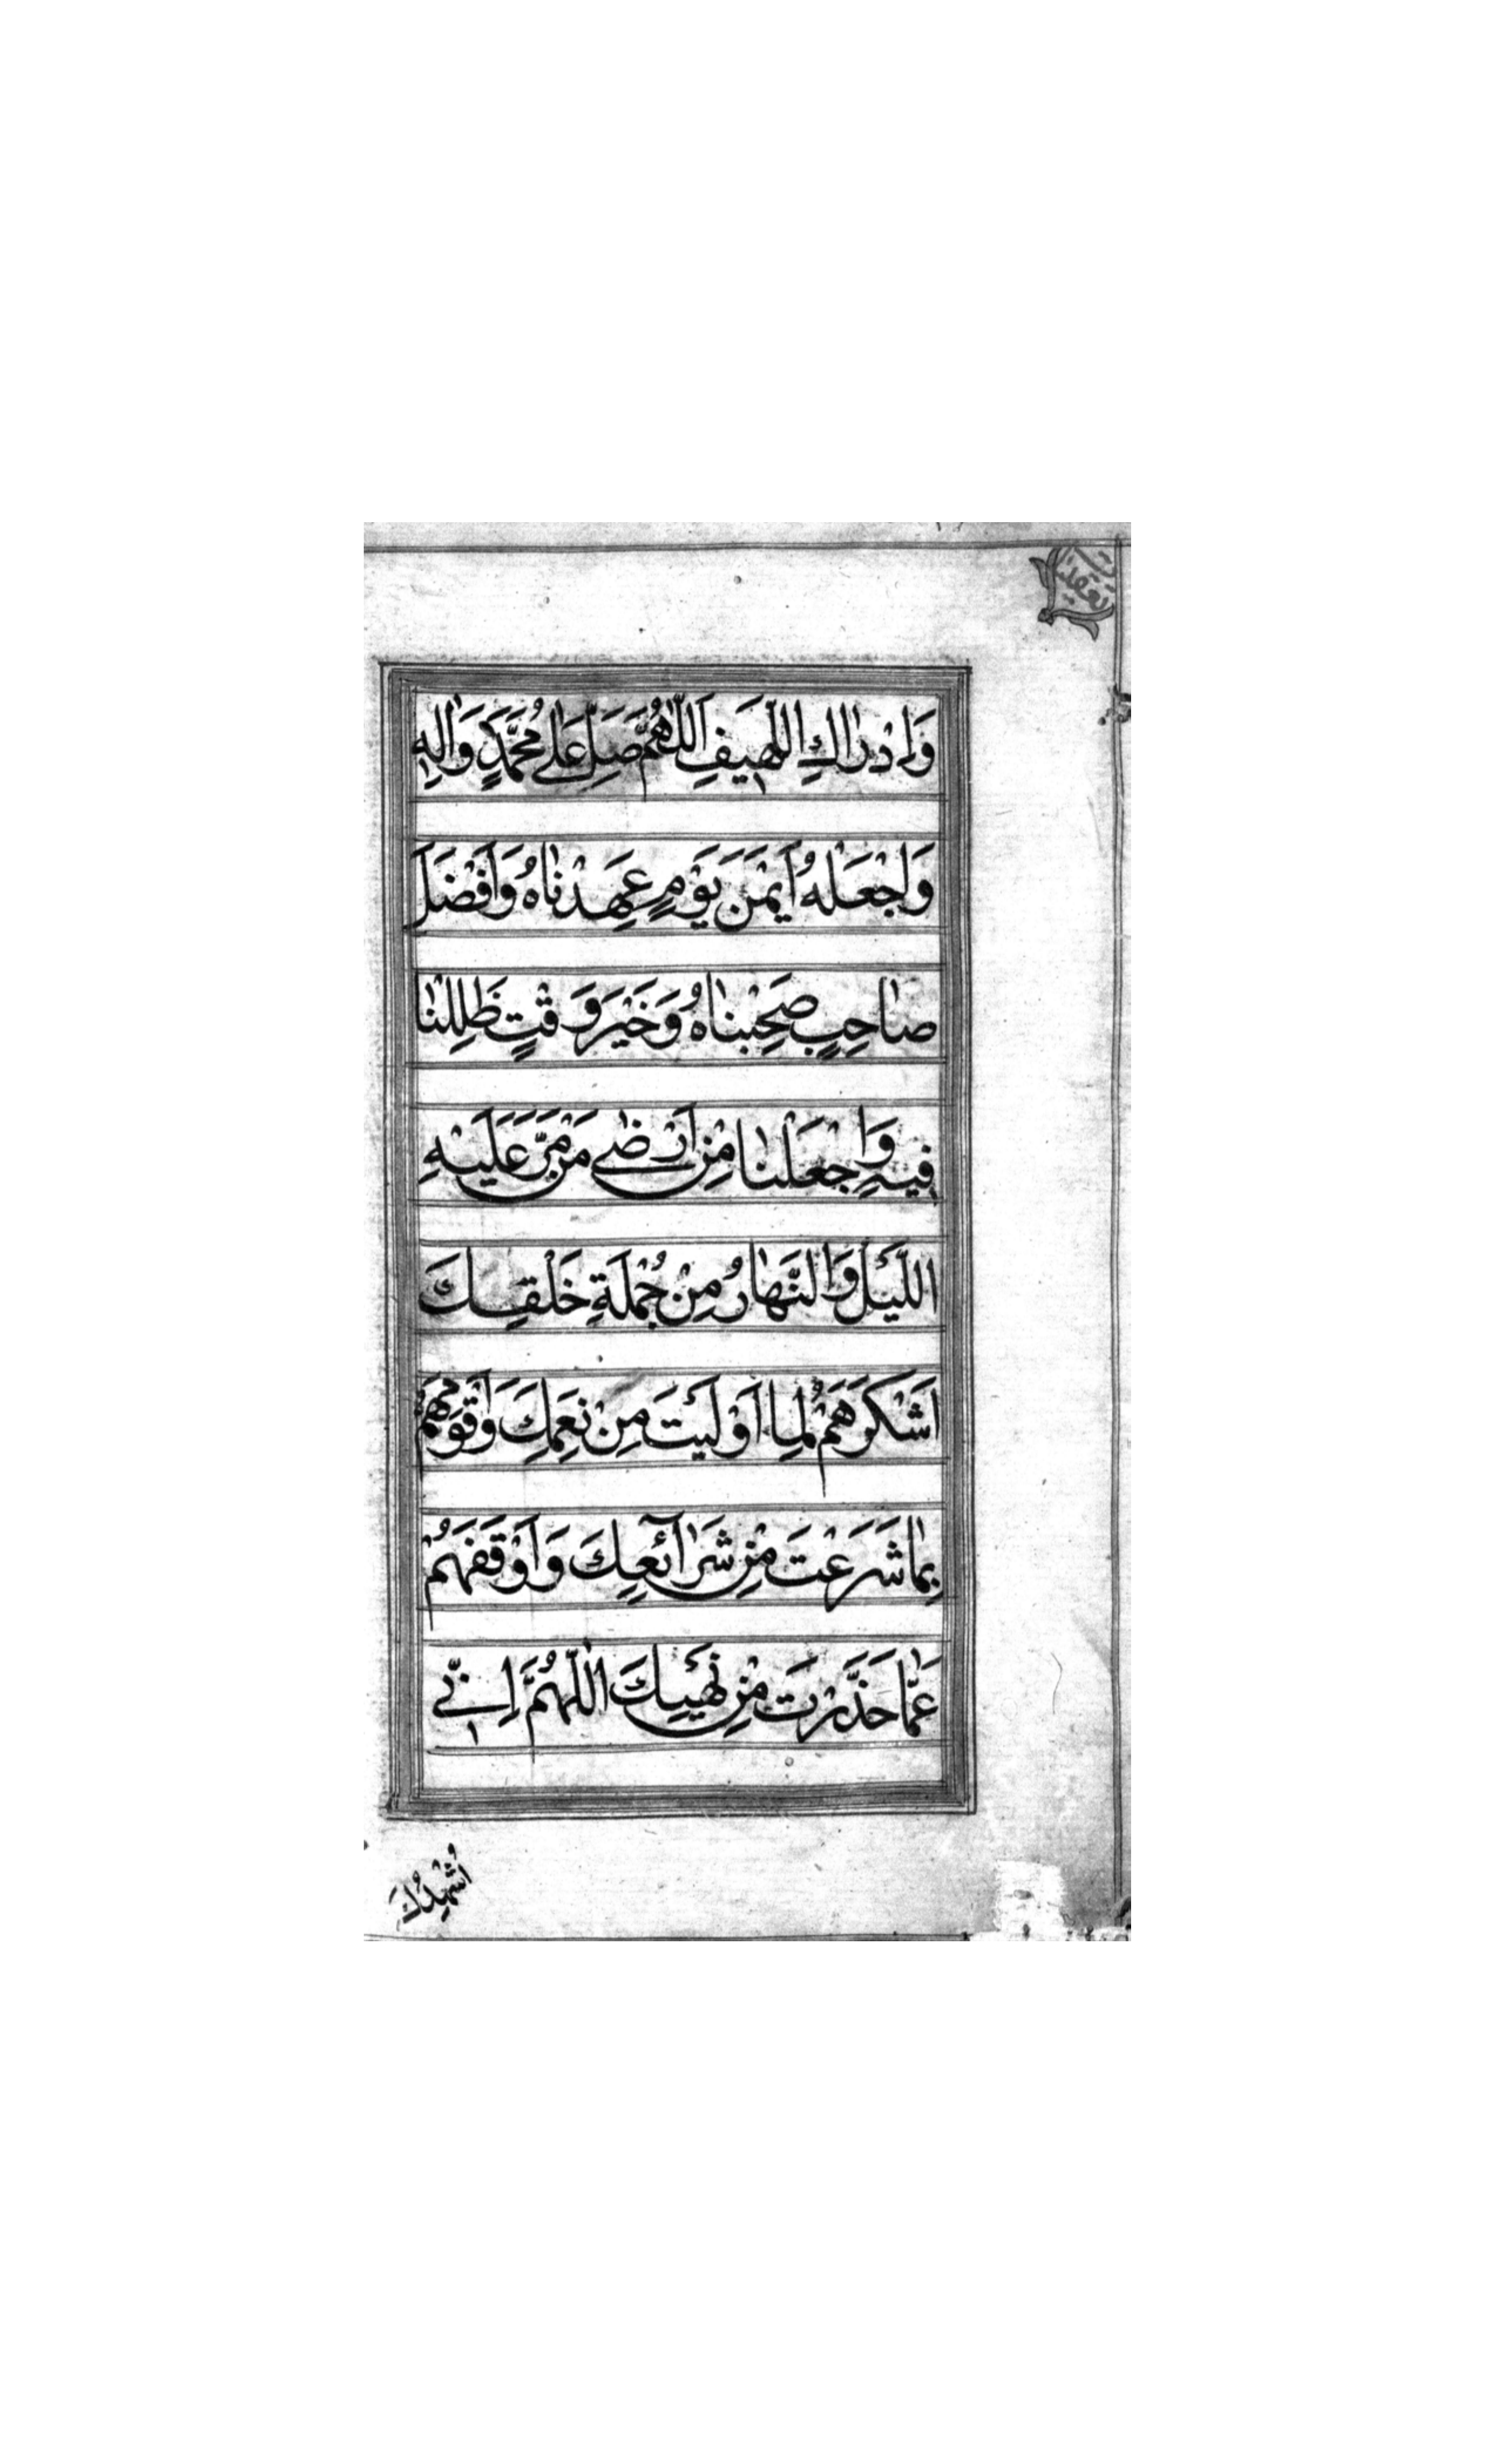 وَاِدْرٰاكِ اللَّهيفِ اَللّٰهُمَّ صَلِّ عَلٰى مُحَمَّدٍ وَاٰلِهِ
وَاجْعَلْهُ اَيْمَنَ يَوْمٍ عَهِدْنٰاهُ وَاَفْضَلَ
صٰاحِبٍ صَحِبْنٰاهُ وَخَيْرَ وَقْتٍ ظَلِلْنٰا
فيهِ وَاجْعَلْنٰا مِنْ اَرْضٰى مَنْ مَرَّ عَلَيْهِ
اللَّيْلُ وَالنَّهٰارُ مِنْ جُمْلَةِ خَلْقِكَ
اَشْكَرَهُمْ لِمٰا اَوْلَيْتَ مِنْ نِعَمِكَ وَاَقْوَمَهُمْ
بِمٰا شَرَعْتَ مِنْ شَرٰآئِعِكَ وَاَوْقَفَهُمْ
عَمّٰا حَذَّرْتَ مِنْ نَهْيِكَ اَللّٰهُمَّ اِنّي
اُشْهِدُكَ